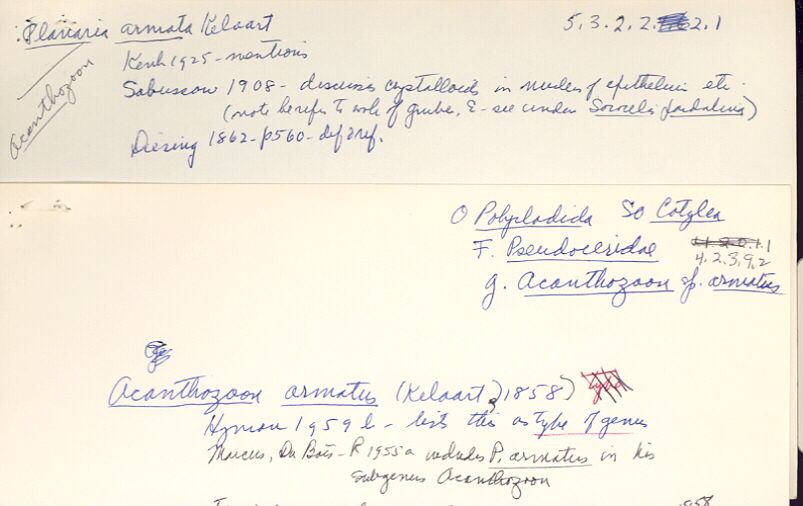 Planaria armata Kelaart 5.3.2.2.2.1
Acanthozoon
Kenk 1925 - mentions
Sabussow 1908 - discusses crystalloids in nuclei of epithelium etc.
(note he refers to work of Graube, & - see under Sorocelis)
Diesing 1862 - p560 - def & ref.
O Polycladida SO Cotylea
F. Pseudoceridae 4.2.0.1.1
4.2.3.9.2
g. Acanthozoon sp. armatus
Acanthozoon armatus (Kelaart, 1858) type
Hyman 1959b - lists this as type of genus
Marcus, Du Bois-R 1955a includes P. armatus in his
subgenus Acanthozoon